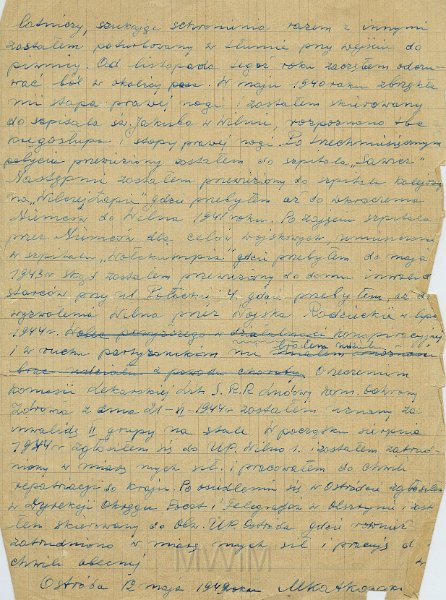 łatniczy, szukając schronienia razem z innymi
zostałem poturbowany w tłumie przy wejściu do
piwnicy. Od listopada tegoż roku zacząłem odczu-
wać ból w okolicy pasa. W maju 1940 roku zbrzękła
mi stopa prawej nogi i zostałem skierowany
do szpitala św. Jakuba w Wilnie, rozpoznano tbc
kręgosłupa i stopy prawej nogi. Po trzechmiesięcznym
pobycie przewieziony zostałem do szpitala "Sawicz"
Następnie zostałem przewieziony do szpitala kolejowego
na Wilczej Łapie gdzie przebyłem aż do wkroczenia
Niemców do Wilna 1941 roku. Po zajęciu szpitala
przez Niemców dla celów wojskowych umieszczono
w szpitalu Wołokumpia gdzie przebyłem do maja
1943 r skąd zostałem przewieziony do domu inwalidów
starców przy ul. Połockiej 4. gdzie przebyłem, aż do
wyzwolenia Wilna przez Wojska Radzieckie w lipcu
1944 r. konspiracyjnej
i w ruchu partyzanckim nie brałem udziału
z powodu choroby. Orzeczeniem
komisji lekarskiej Lit. S.R.R. Ochrony
Zdrowia z dnia 21-II-1944 r zostałem uznany za
inwalidę II grupy na stałe. W początku sierpnia
1944 r zgłosiłem się do UP. Wilno 1. i zostałem zatrud-
niony w miarę mych sił. i pracowałem do chwili
repatriacji do kraju. Po osiedleniu się w Ostródzie zgłosiłem
w Dyrekcji Okręgu Poczt i Telegrafów w Olsztynie i zosta-
łem skierowany do Obw. UP. Ostróda gdzie również
zatrudniono w miarę mych sił i pracuję do
chwili obecnej
Ostróda 12 maja 1949 roku MKatkowski
MWiM